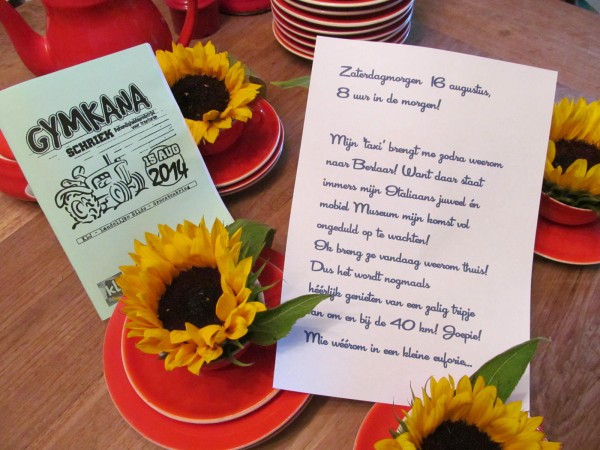 GYMKANA
SCHRIEK
15 AUG
2014
Zaterdagmorgen 16 augustus,
8 uur in de morgen!
Mijn 'taxi' brengt me zodra weerom
naar Berlaar! Want daar staat
immers mijn Italiaans juweel én
mobiel Museum mijn komst vol
ongeduld op te wachten!
Ik breng ze vandaag weerom thuis!
Dus het wordt nogmaals
héérlijk genieten van een zalig tripje
van om en bij de 40 km! Joepie!
Mie wéérom in een kleine euforie...